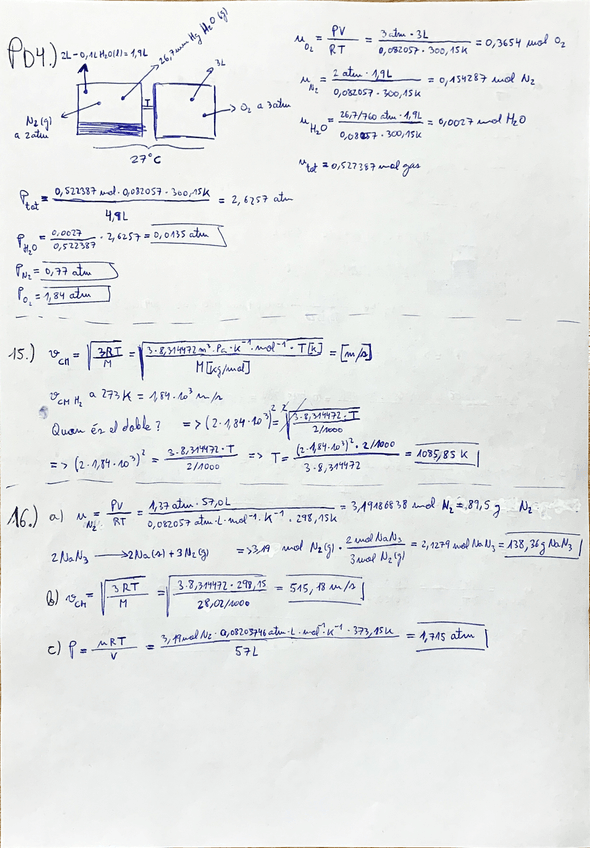 PD4.) 2L - 0,1L H₂O(l) = 1,9L
26,7 mm Hg H₂O (g)
3L
N₂(g)
a 2atm
O₂ a 3atm
27°C
n_O₂ = PV/RT = 3 atm · 3L / 0,082057 · 300,15K = 0,3654 mol O₂
n_N₂ = 2 atm · 1,9L / 0,082057 · 300,15K = 0,154287 mol N₂
n_H₂O = 26,7/760 atm · 1,9L / 0,082057 · 300,15K = 0,0027 mol H₂O
n_tot = 0,527387 mol gas
P_tot = 0,522387 mol · 0,082057 · 300,15K / 4,9L = 2,6257 atm
P_H₂O = 0,0027 / 0,522387 · 2,6257 = 0,0135 atm
P_N₂ = 0,77 atm
P_O₂ = 1,84 atm
15.) v_CM = √(3RT / M) = √(3 · 8,314472 m³ · Pa · K⁻¹ · mol⁻¹ · T[K] / M[kg/mol]) = [m/s]
v_CM H₂ a 273K = 1,84·10³ m/s
Quan és el doble? => (2·1,84·10³)² = √(3·8,314472·T / 2/1000)²
=> (2·1,84·10³)² = 3·8,314472·T / 2/1000 => T = (2·1,84·10³)² · 2/1000 / 3·8,314472 = 1085,85 K
16.) a) n_N₂ = PV/RT = 1,37 atm · 57,0L / 0,082057 atm·L·mol⁻¹·K⁻¹ · 298,15K = 3,19186838 mol N₂ = 89,5 g N₂
2NaN₃ → 2Na(s) + 3N₂(g) => 3,19 mol N₂(g) · 2 mol NaN₃ / 3 mol N₂(g) = 2,1279 mol NaN₃ = 138,36 g NaN₃
b) v_CM = √(3RT / M) = √(3·8,314472·298,15 / 28,02/1000) = 515,18 m/s
c) P = nRT / V = 3,19 mol N₂ · 0,08205746 atm·L·mol⁻¹·K⁻¹ · 373,15K / 57L = 1,715 atm